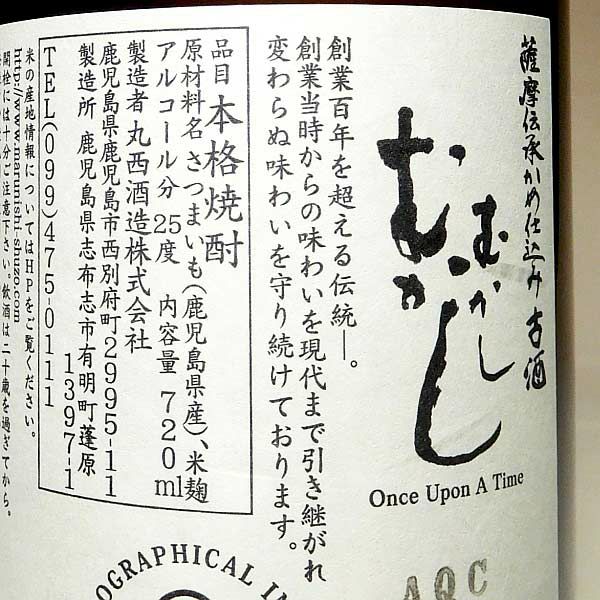 薩摩伝承かめ仕込み古酒
むかし
むかし
Once Upon A Time
創業百年を超える伝統―。
創業当時からの味わいを現代まで引き継がれ
変わらぬ味わいを守り続けております。
品目 本格焼酎
原材料名 さつまいも(鹿児島県産)、米麹
アルコール分 25度 内容量 720ml
製造者 丸西酒造株式会社
鹿児島県鹿児島市西別府町2995-11
製造所 鹿児島県志布志市有明町蓬原
1397-1
TEL(099)475-0111
米の産地情報についてはHPをご覧ください。
http://www.marunishi-shuzo.com
開栓には十分ご注意下さい。飲酒は二十歳を過ぎてから。
OGRAPHICAL IN
AQC